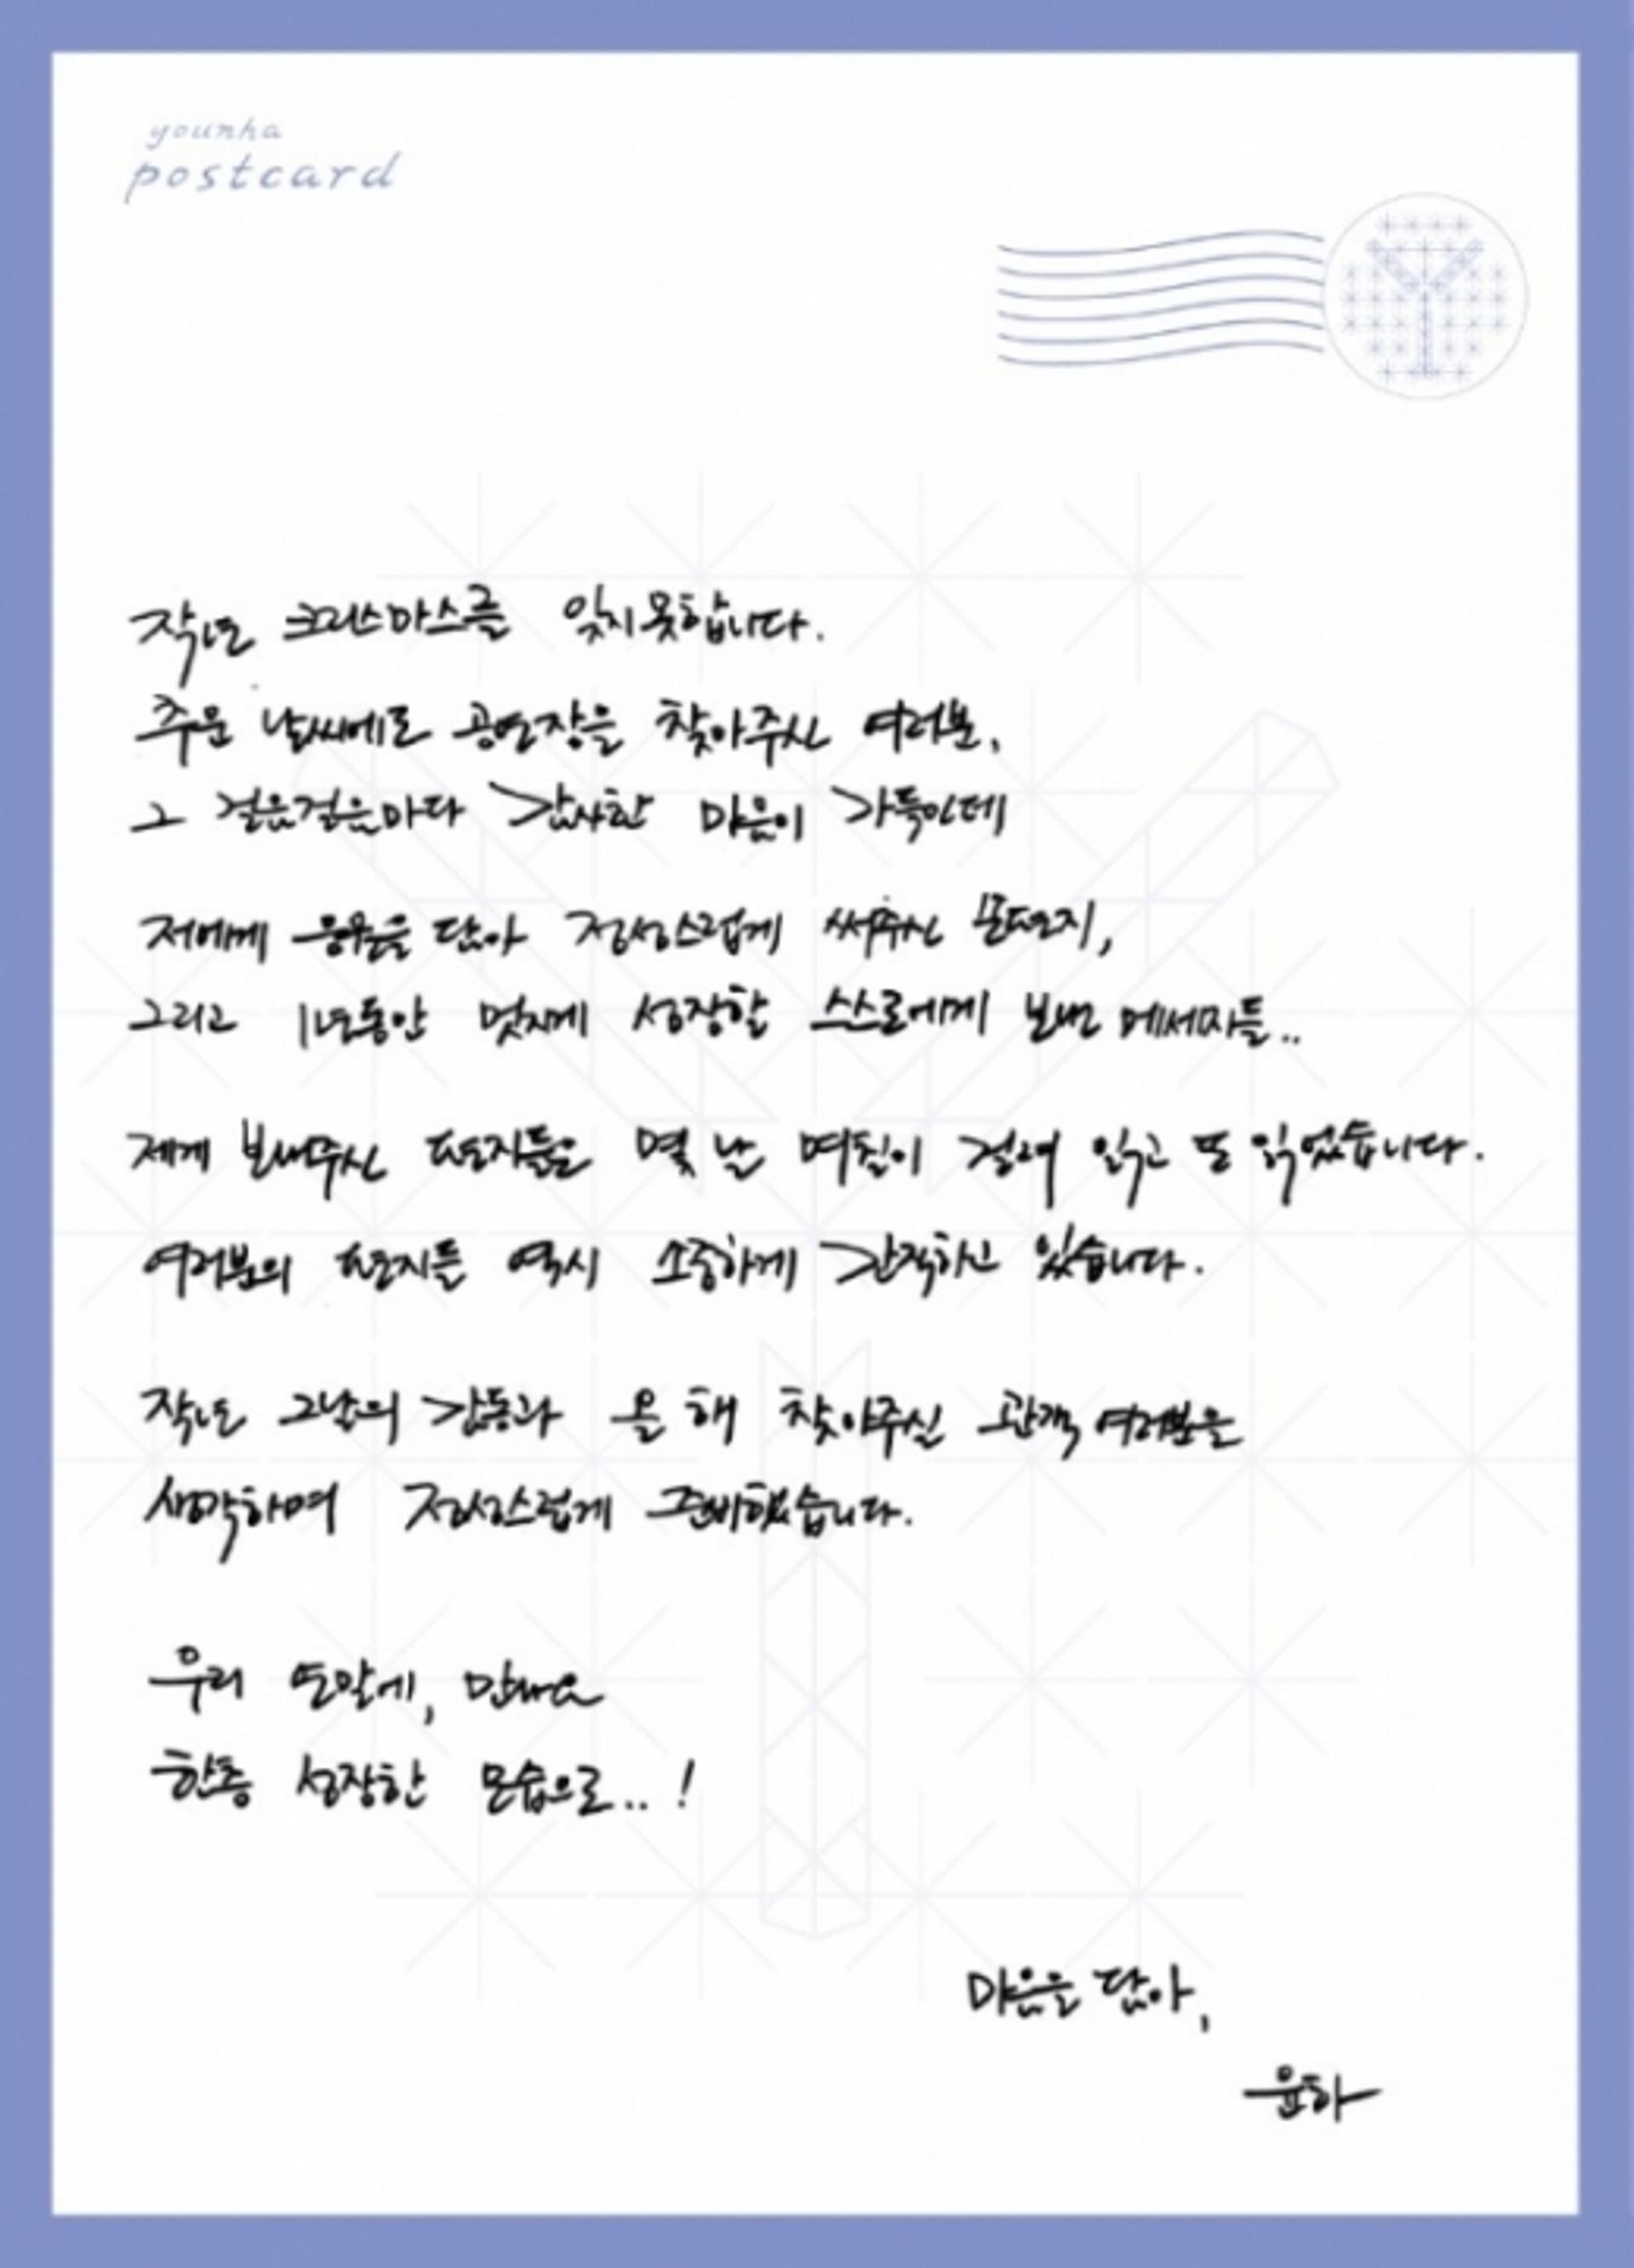 younha
postcard
작년 크리스마스를 잊지못합니다.
추운 날씨에도 공연장을 찾아주신 여러분,
그 걸음걸음마다 감사한 마음이 가득인데
저에게 응원을 담아 정성스럽게 써주신 손편지,
그리고 1년동안 멋지게 성장할 스스로에게 보낸 메세지들..
제게 보내주신 편지들은 몇 날 며칠이 걸려 읽고 또 읽었습니다.
여러분의 편지들 역시 소중하게 간직하고 있습니다.
작년 그날의 감동과 올 해 찾아주실 관객 여러분을
생각하며 정성스럽게 준비했습니다.
우리 연말에, 만나요
한층 성장한 모습으로.. !
마음을 담아,
윤하